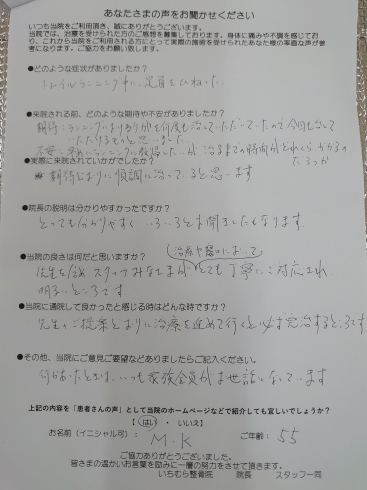 あなたさまの声をお聞かせください
いつも当院をご利用頂き、誠にありがとうございます。
当院では、治療を受けられた方のご感想を募集しております。身体に痛みや不調を感じてお
り、これから当院をご利用される方にとって実際の施術を受けられたあなた様の率直な声が参
考になります。ご協力をお願い致します。
●どのような症状がありましたか?
トレイルランニング中に、足首をひねった
●来院される前、どのような期待や不安がありましたか?
期待:ランニングによるケガを何度も治していただいていたので今回も治して
いただけるものと思いました
治るまでの時間がどれくらいかかるの
だろうか
●実際に来院されていかがでしたか?
期待どおりに順調に治っていると思います
●院長の説明は分かりやすかったですか?
とっても分かりやすく、いろいろとお聞きしたくなります
●当院の良さは何だと思いますか?
(治療や電話において)
先生を含めスタッフみなさまがとても丁寧にご対応され
明るいところです
●当院に通院して良かったと感じる時はどんな時ですか?
先生のご提案どおりに治療を進めて行くと必ず完治するところです
●その他、当院にご意見ご要望などありましたらご記入ください。
何かあったときは、いつも家族全員がお世話になっています
上記の内容を「患者さんの声」として当院のホームページなどで紹介しても宜しいでしょうか?
【 はい ・ いいえ 】
お名前(イニシャル可): M.K ご年齢: 55
ご協力ありがとうございました。
皆さまの温かいお言葉を励みに一層の努力をさせて頂きます。
いちむら整骨院 院長 スタッフ一同